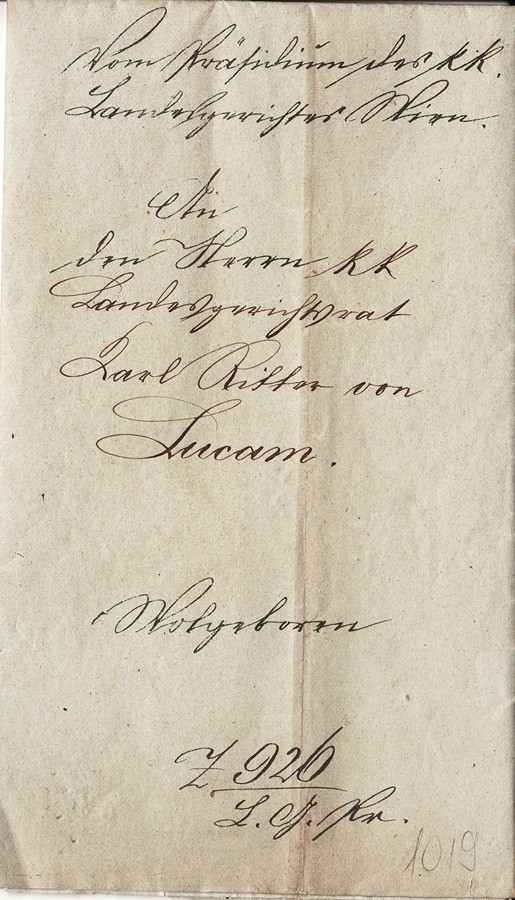 Vom Präsidium des kk.
Landesgerichtes Wien.
An
den Herrn kk
Landesgerichtsrat
Karl Ritter von
Lucam.
Wolgeboren
Z 926
L. G. Pr.
1019